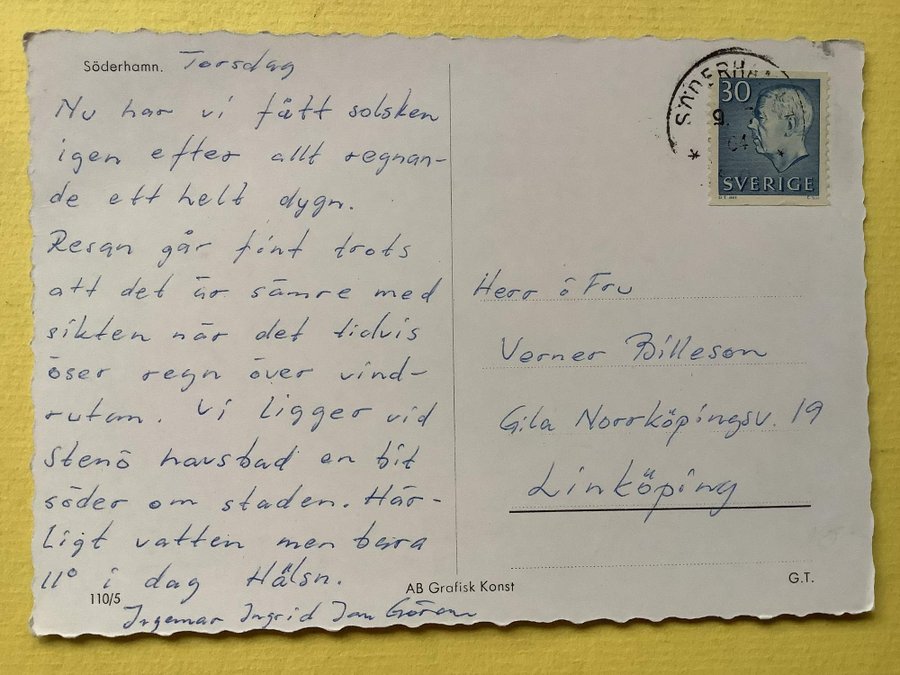 Söderhamn. Torsdag
Nu har vi fått solsken
igen efter allt regnan-
de ett helt dygn.
Resan går fint trots
att det är sämre med
sikten när det tidvis
öser regn över vind-
rutan. Vi ligger vid
Stenö havsbad en bit
söder om staden. Här-
ligt vatten men bara
11° i dag Hälsn.
Ingemar Ingrid Jan Göran
110/5
AB Grafisk Konst
G.T.
SÖDERHA
9
64
30
SVERIGE
Herr ö Fru
Verner Billeson
Gila Norrköpingsv. 19
Linköping